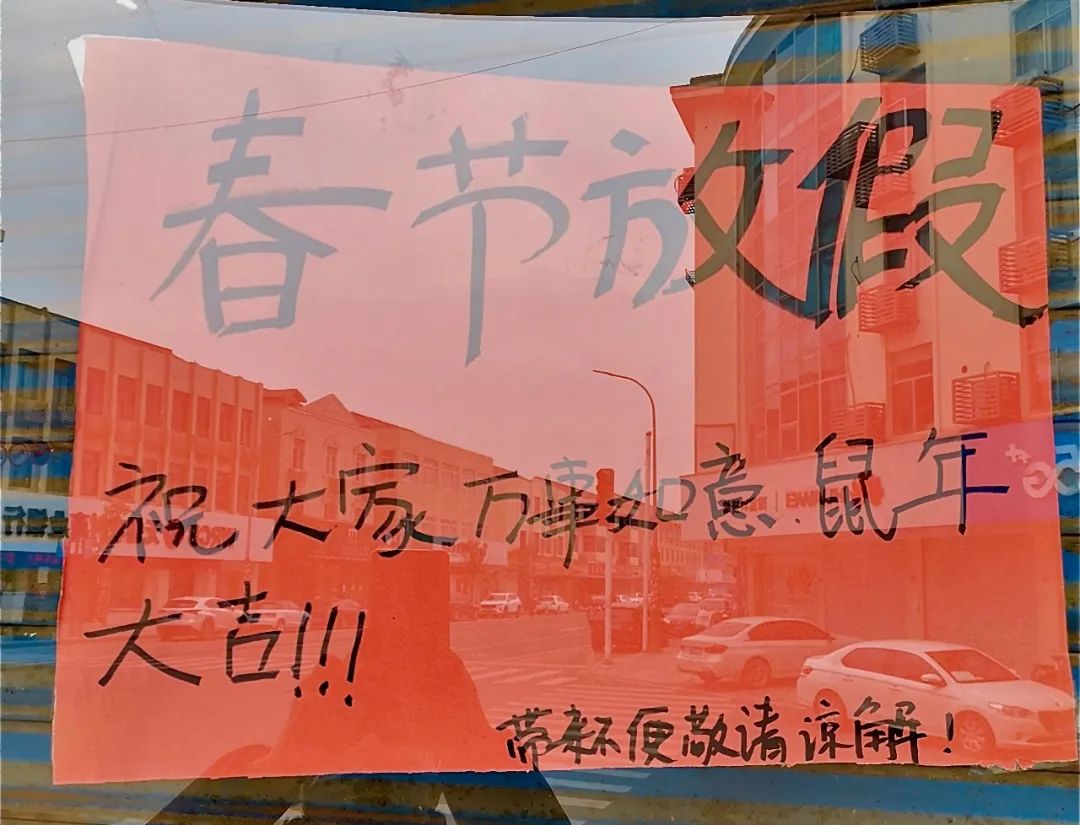 春节放假
祝大家万事如噫.鼠年
大吉!!!
带来不便敬请谅解!